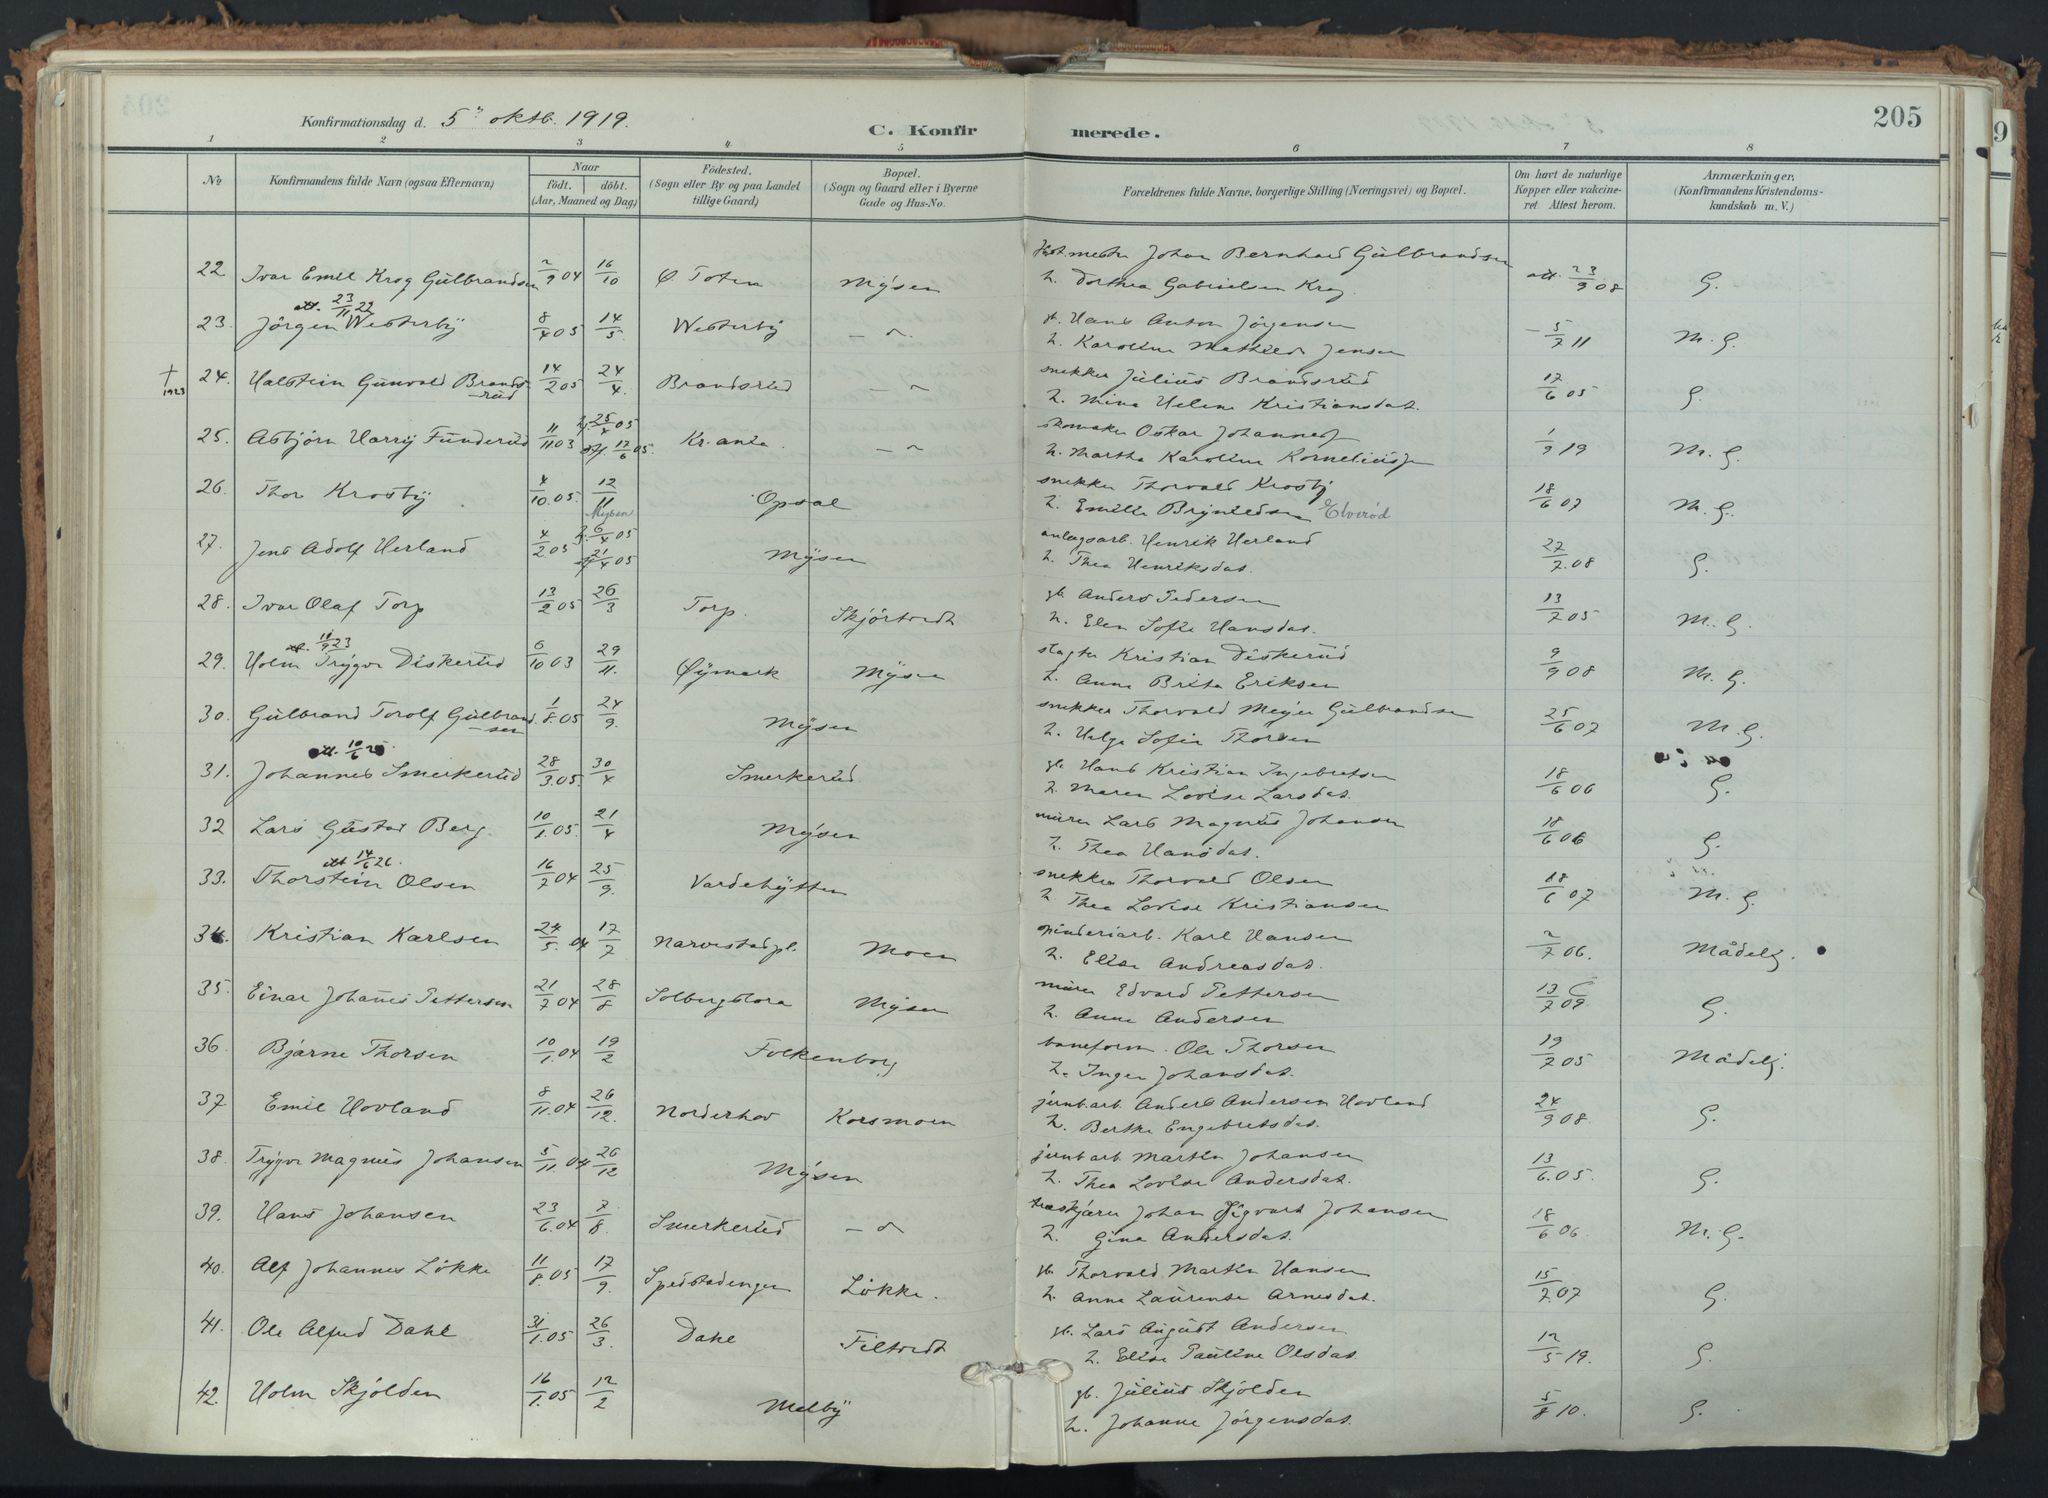 205
Konfirmationsdag d. 5" oktb. 1919.
C. Konfirmerede.
1 2 3 4 5 6 7 8
No
Konfirmandens fulde Navn (ogsaa Efternavn)
Naar
födt. döbt.
(Aar, Maaned og Dag)
Födested.
(Sogn eller By og paa Landet
tillige Gaard)
Bopæl.
(Sogn og Gaard eller i Byerne
Gade og Hus-No.
Forældrenes fulde Navne, borgerlige Stilling (Næringsvei) og Bopæl.
Om havt de naturlige
Kopper eller vakcine-
ret Attest herom.
Anmærkninger,
(Konfirmandens Kristendoms-
kundskab m. V.)
22 Ivar Emil Krog Gulbrandsen 2/9 04 16/10 Ø. Toten Mysen Johan Bernhard Gulbrandsen
h. Dorthea Gabrielsen Krog att. 23/9 08 G.
att. 23/11 22
23. Jørgen Westerby 8/4 05 14/5 Westerby — " — gb. Hans Anton Jørgensen
h. Karoline Mathilde Jensen – 5/7 11 M. G.
† 1923
24. Halstein Gunvald Brands-
rud 14/2 05 24/4 Brandsrud — " — snekker Julius Brandsrud
h. Mina Helene Kristiansdat. 17/6 05 G.
25. Asbjørn Harry Funderud 11/11 03 25/4 05 17/6 05 Kr.ania — " — skomaker Oskar Johannes
h. Martha Karoline Kornelius 1/9 19 M. G.
26. Thor Krosby 4/10. 05 12/11 Opsal snekker Thorvald Krosby
h. Emilie Brynildsen Elverød 18/6 07 M. G.
Mysen
27. Jens Adolf Herland 4/2 05 6/4 05 21/4 05 Mysen anlægsarb. Henrik Herland
h. Thea Henriksdat. 27/7. 08 G.
28. Ivar Olaf Torp 13/2 05 26/3 Torp. Skjørtvedt gb. Anders Pedersen
h. Elen Sofie Hansdat. 13/7 05 M. G.
att. 18/9 23
29. Holm Trygve Diskerud 6/10 03 29/11. Øymark Mysen slagter Kristian Diskerud
h. Anna Brita Eriksen 9/9 08 M. G.
30. Gulbrand Torolf Gulbrand-
sen 1/8. 05 24/9. Mysen snekker Thorvald Meyer Gulbrandsen
h. Helga Sofie Thorsen 25/6 07 M. G.
att. 10/6 25.
31. Johannes Smerkerud 28/3. 05. 30/4 Smerkerud gb. Hans Kristian Ingebretsen
h. Maren Lovise Larsdat. 18/6 06 G.
32 Lars Gustav Berg. 10/1. 05. 21/4 Mysen murer Lars Magnus Johansen
h. Thea Hansdat. 18/6 06 G.
att 14/6 26.
33. Thorstein Olsen 16/7 04 25/9. Vardehytten snekker Thorvald Olsen
h. Thea Lovise Kristiansen 18/6 07 M. G.
34. Kristian Karlsen 24/5. 04 17/7 Narvestadpl. Moen spinderiarb. Karl Hansen
h. Elise Andreasdat. 2/7 06. Mådelg.
35. Einar Johannes Pettersen 21/7 04 28/8 Solbergstora Mysen murer Edvard Pettersen
h. Anna Andersen 13/7 09. G.
36. Bjarne Thorsen 10/1. 04 19/2 Folkenborg baneform. Ole Thorsen
h. Inger Johansdat. 19/7 05 Mådelg.
37 Emil Hovland 8/11. 04 26/12. Norderhov Korsmoen jernb.arb. Anders Andersen Hovland
h. Berthe Engebretsdat. 24/9 08 G.
38. Trygve Magnus Johansen 5/11. 04 26/12 Mysen jernb.arb Martin Johansen
h. Thea Lovise Andersdat. 13/6. 05. G.
39. Hans Johansen 23/6. 04 7/8. Smerkerud — " træskjærer Johan Sigvart Johansen
h. Gina Andersdat. 18/6 06. M. G.
40. Alf Johannes Løkke 11/8. 05 17/9. Spedstadengen Løkke. gb. Thorvald Martin Hansen
h. Anne Laurense Arnesdat. 15/7. 07 G.
41. Ole Alfred Dahl 31/1. 05 26/3. Dahl Filtvedt gb. Lars August Andersen
h. Elise Pauline Olsdat. 12/5 19. G.
42. Holm Skjolden 16/1. 05 12/2 Melby gb. Julius Skjolden
h. Johanne Jørgensdat. 5/8 10. G.